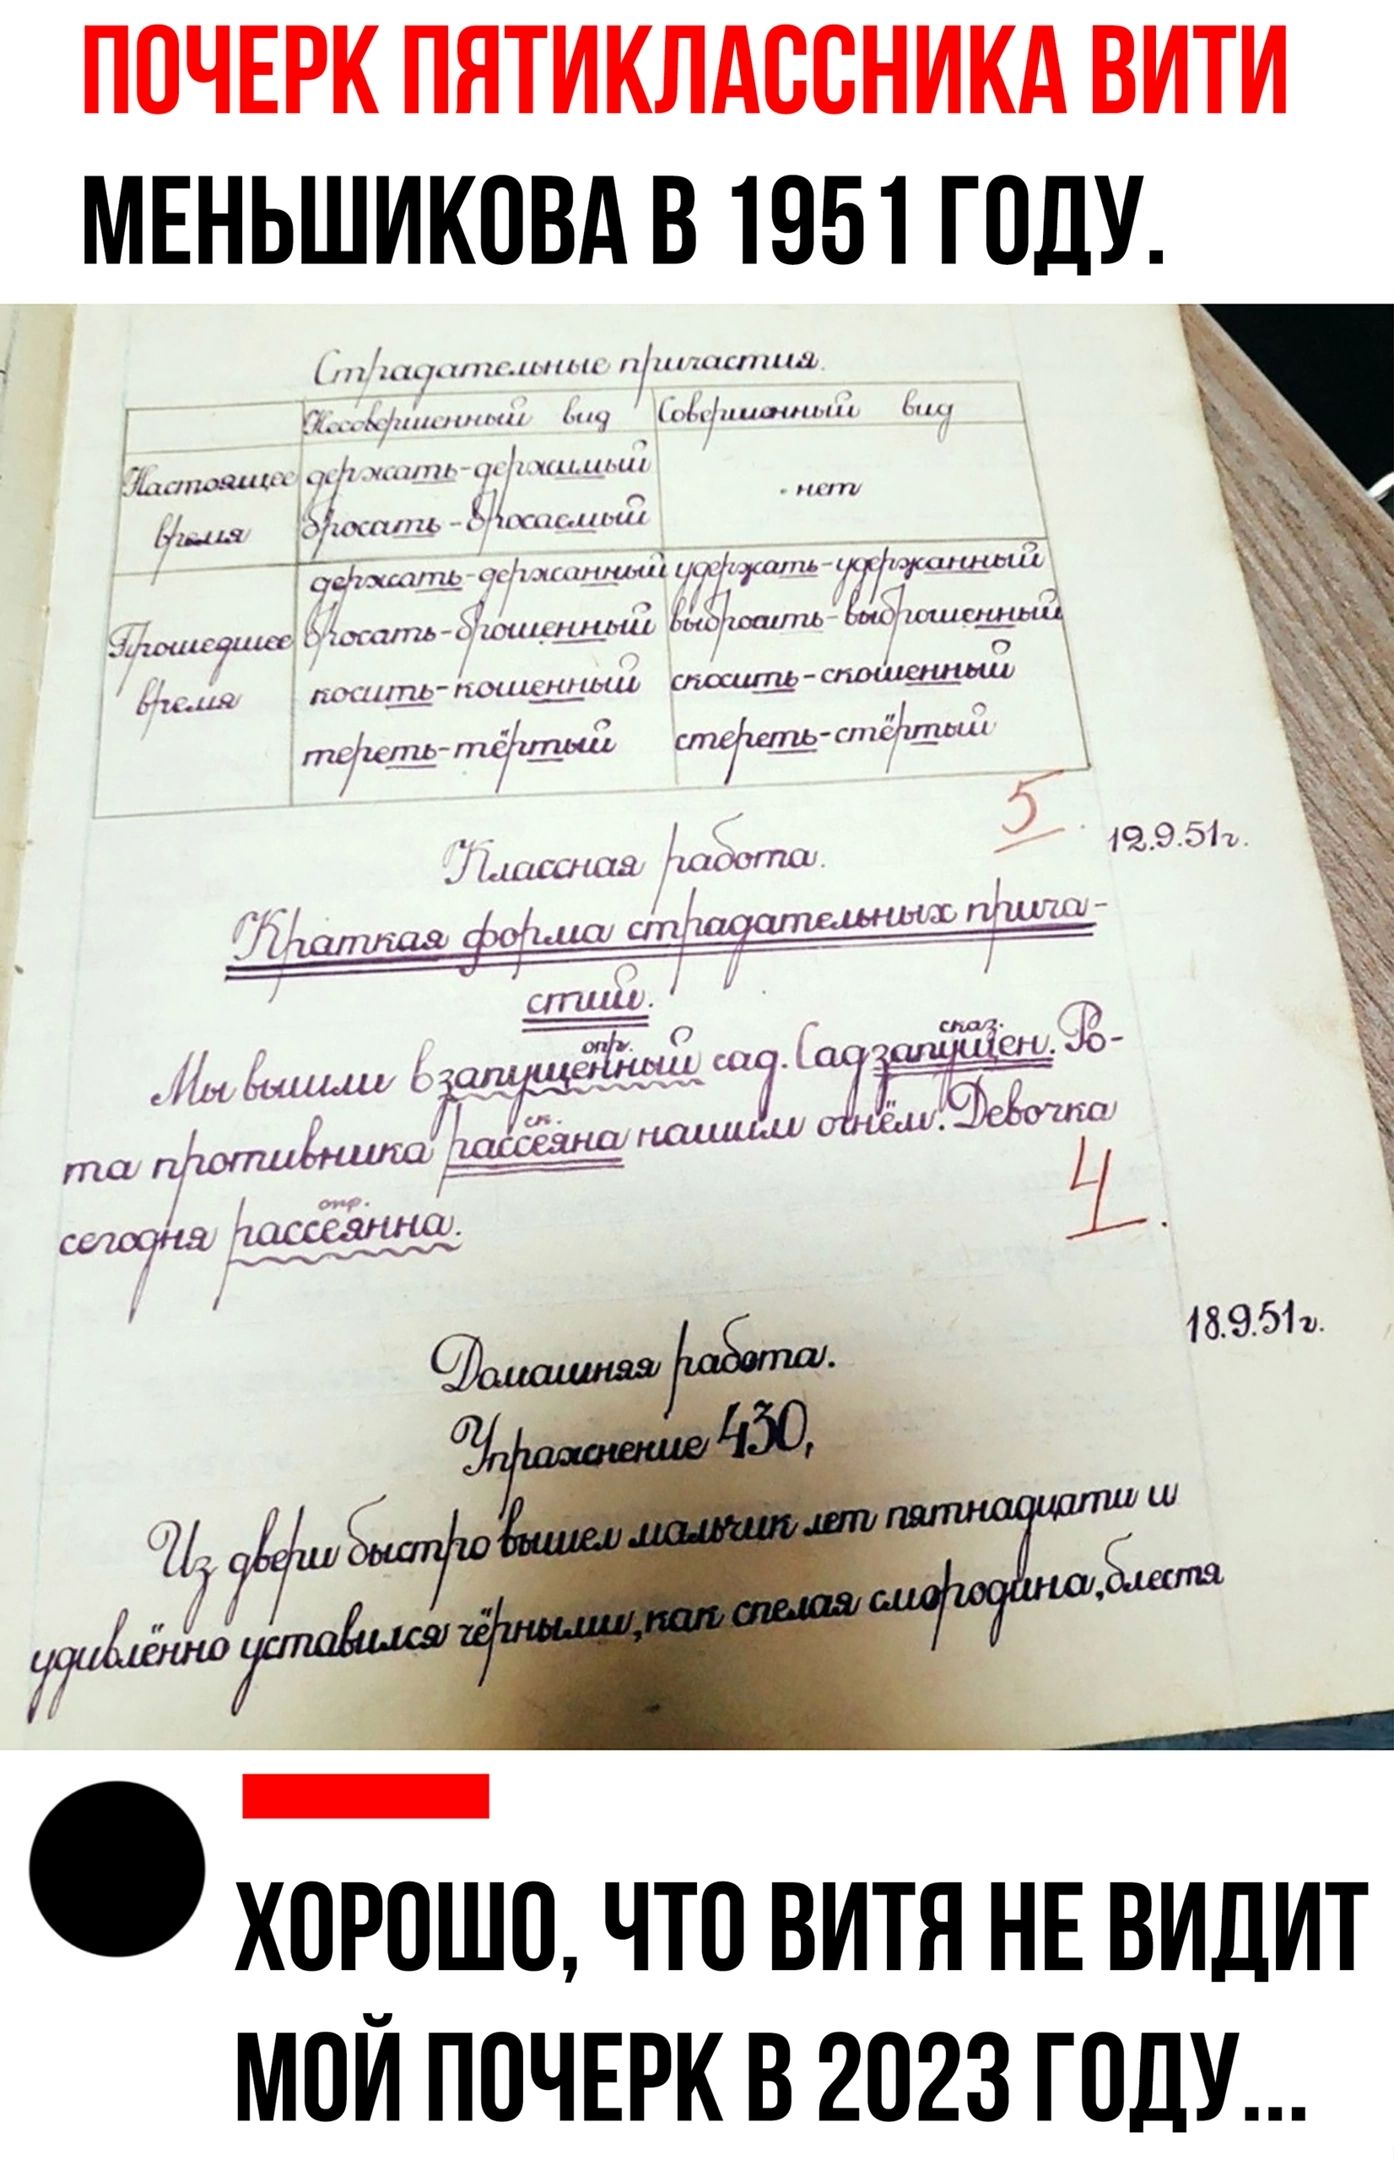 ПОЧЕРК ПЯТИКЛАССНИКА ВИТИ
МЕНЬШИКОВА В 1951 ГОДУ.
Страдательные причастия.
Несовершенный вид Совершенный вид
Настоящее время
держать-держимый
бросать-бросаемый
нет
Прошедшее время
держать-держанный удержать-удержанный
бросать-брошенный выбросить-выброшенный
косить-кошенный скосить-скошенный
тереть-тёртый стереть-стёртый
5
Классная работа. 12.9.51г.
Краткая форма страдательных прича-
стий.
опр. сказ.
Мы вышли в запущенный сад. Сад запущен. Ро-
ск.
та противника рассеяна нашим огнём. Девочка
опр.
сегодня рассеянна.
4.
18.9.51г.
Домашняя работа.
Упражнение 430,
Из двери быстро вышел мальчик лет пятнадцати и
удивлённо уставился чёрными, как спелая смородина, блестя
ХОРОШО, ЧТО ВИТЯ НЕ ВИДИТ
МОЙ ПОЧЕРК В 2023 ГОДУ...